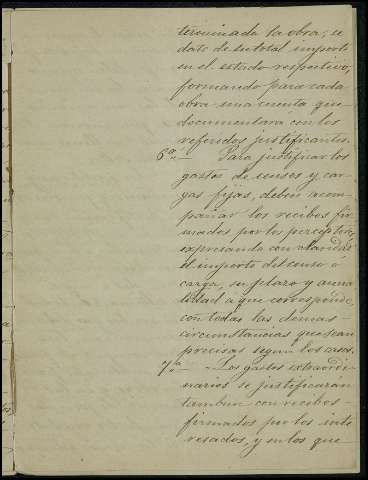 terminada la obra; se
date de su total importe
en el estado respectivo,
formando para cada
obra una cuenta que
documentara con los
referidos justificantes.
6ª.— Para justificar los
gastos de censos y car-
gas fijas, deben acom-
pañar los recibos fir-
mados por los perceptores,
expresando con claridad
el importe del censo ó
carga, su plazo y anua-
lidad á que corresponde,
con todas las demas
circunstancias que sean
precisas segun los casos.
7ª.— Los gastos extraordi-
narios se justificarán
tambien con recibos
firmados por los inte-
resados, y en los que